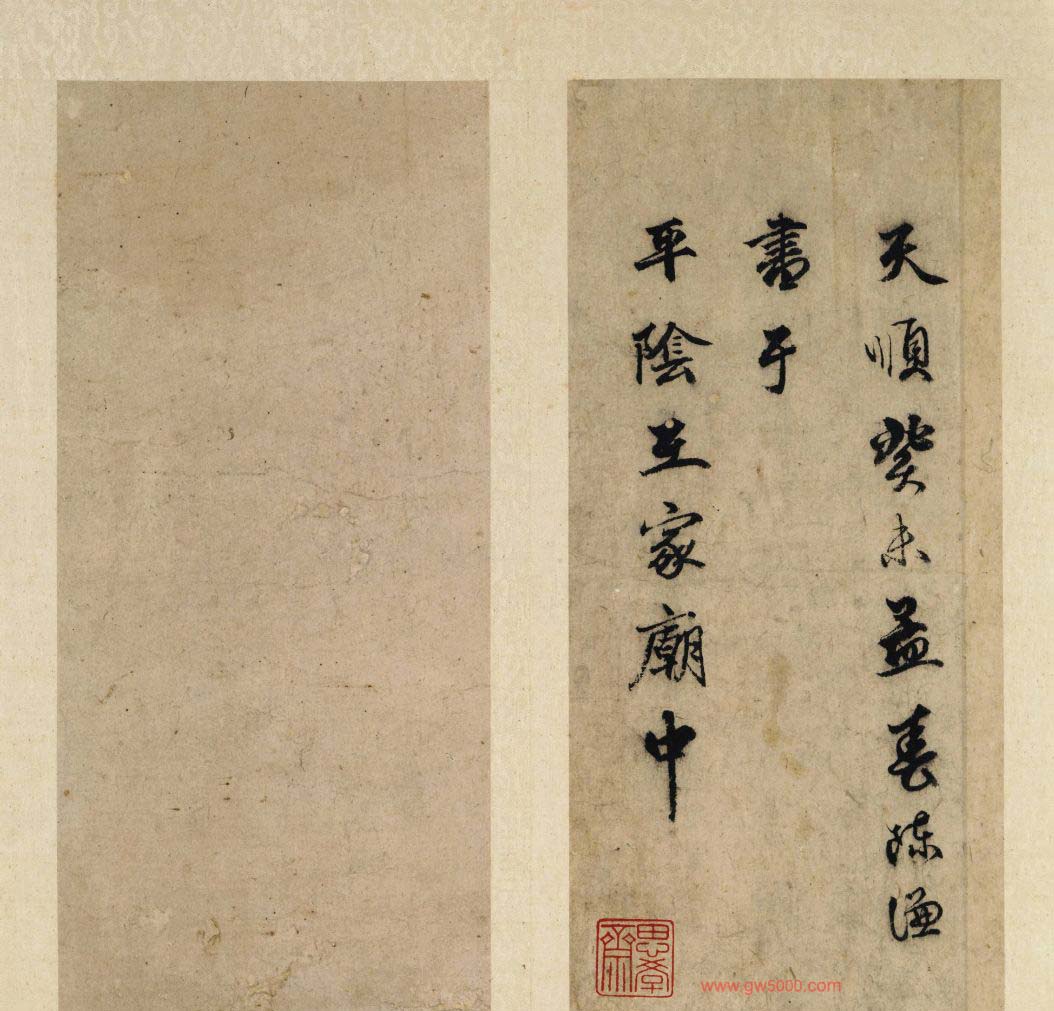 天順癸未孟春陳謙
書于
平陰王家廟中
www.gw5000.com